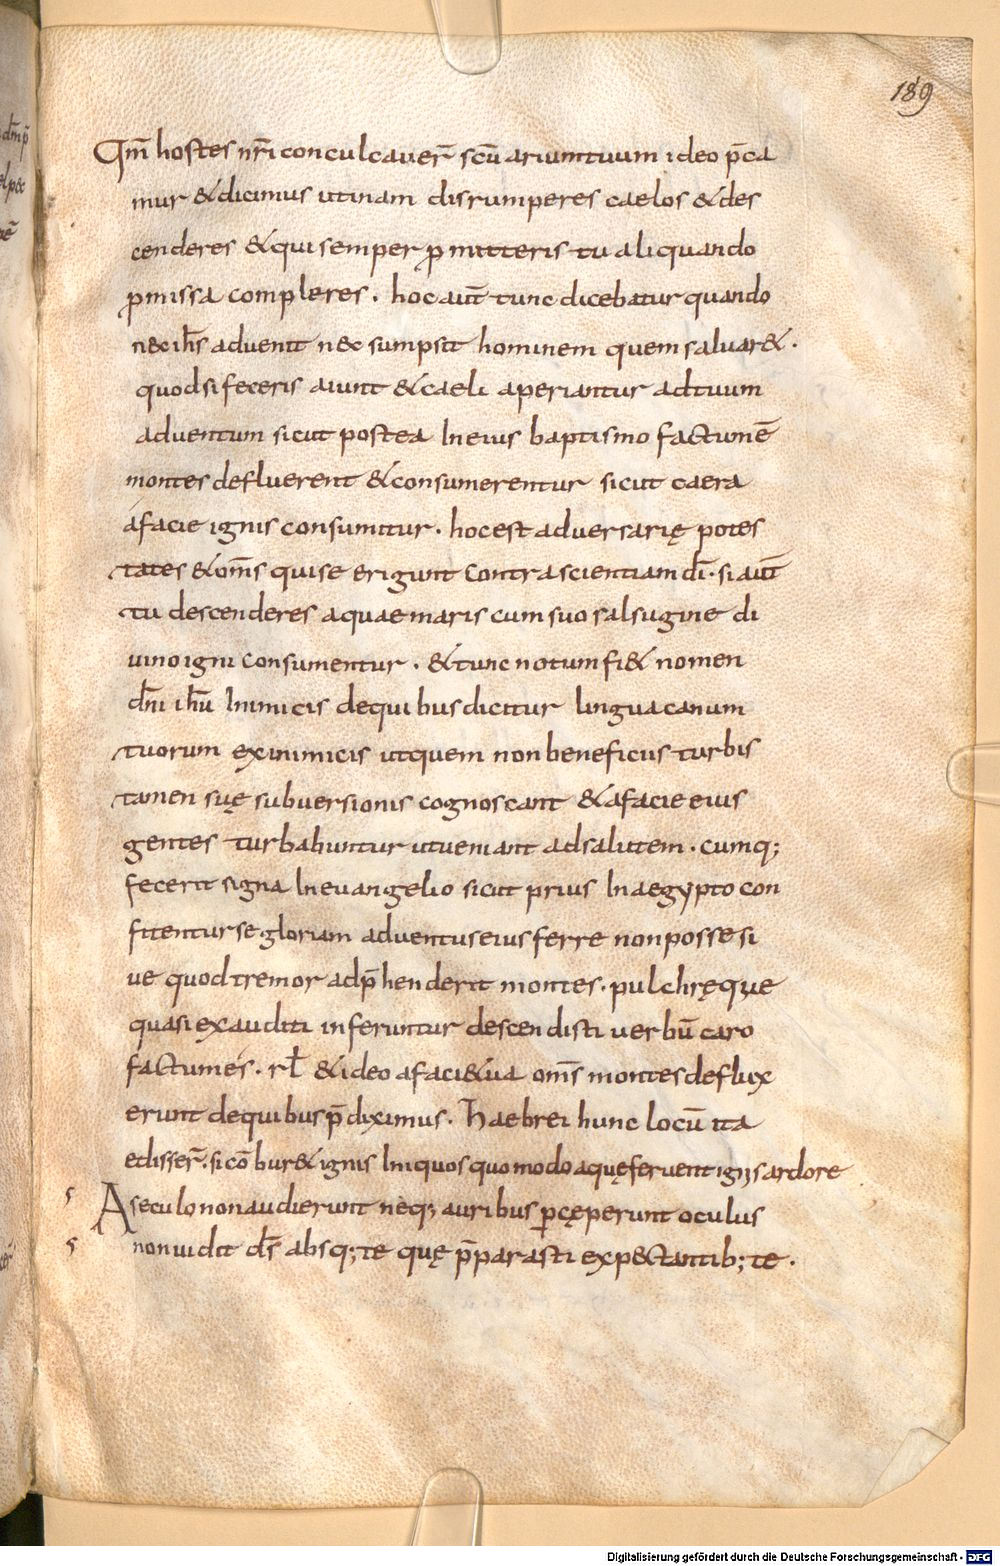 189
Qm̄ hostes nr̄i conculcaver̄ scū ariumtuum ideo p̄ca
mur &dicimus utinam disrumperes caelos &des
cenderes &qui semper ꝓmitteris tu aliquando
ꝓmissa compleres. hoc aut̄ tunc dicebatur quando
nec ih̄s advenit nec sumpsit hominem quem saluar&.
quod si feceris aiunt &caeli aperiantur ad tuum
adventum sicut postea In eius baptismo factumē
montes defluerent &consumerentur sicut caera
afacie ignis consumitur. hoc est adversarię potes
tates &om̄s qui se erigunt contra scientiam dī. si aut̄
tu descenderes aquae maris cum suo salsugine di
uino igni consumentur. &tunc notum fi& nomen
dn̄i ih̄u Inimicis de quibus dicitur lingua canum
tuorum ex inimicis ut quem non beneficus turbis
tamen suę subversionis cognoscant &afacie eius
gentes turbabuntur ut veniant ad salutem. cumq;
fecerit signa In evangelio sicut prius In aegypto con
fitentur se gloriam adventus eius ferre non posse si
ve quod tremor adp̄henderit montes. pulchręque
quasi exauditi inferuntur descendisti verbū caro
factum és. rł &ideo afaci&ua om̄s montes deflux
erunt de quibus p̄diximus. Haebrei hunc locū ita
edisser̄. si cōbur& ignis Iniquos quomodo aquę fervent ignis ardore
5 A seculo non audierunt neq; auribus ꝑcęperunt oculus
5 non vidit ds̄ absq; te quę p̄parasti exp&ctantib; te.
Digitalisierung gefördert durch die Deutsche Forschungsgemeinschaft - DFG